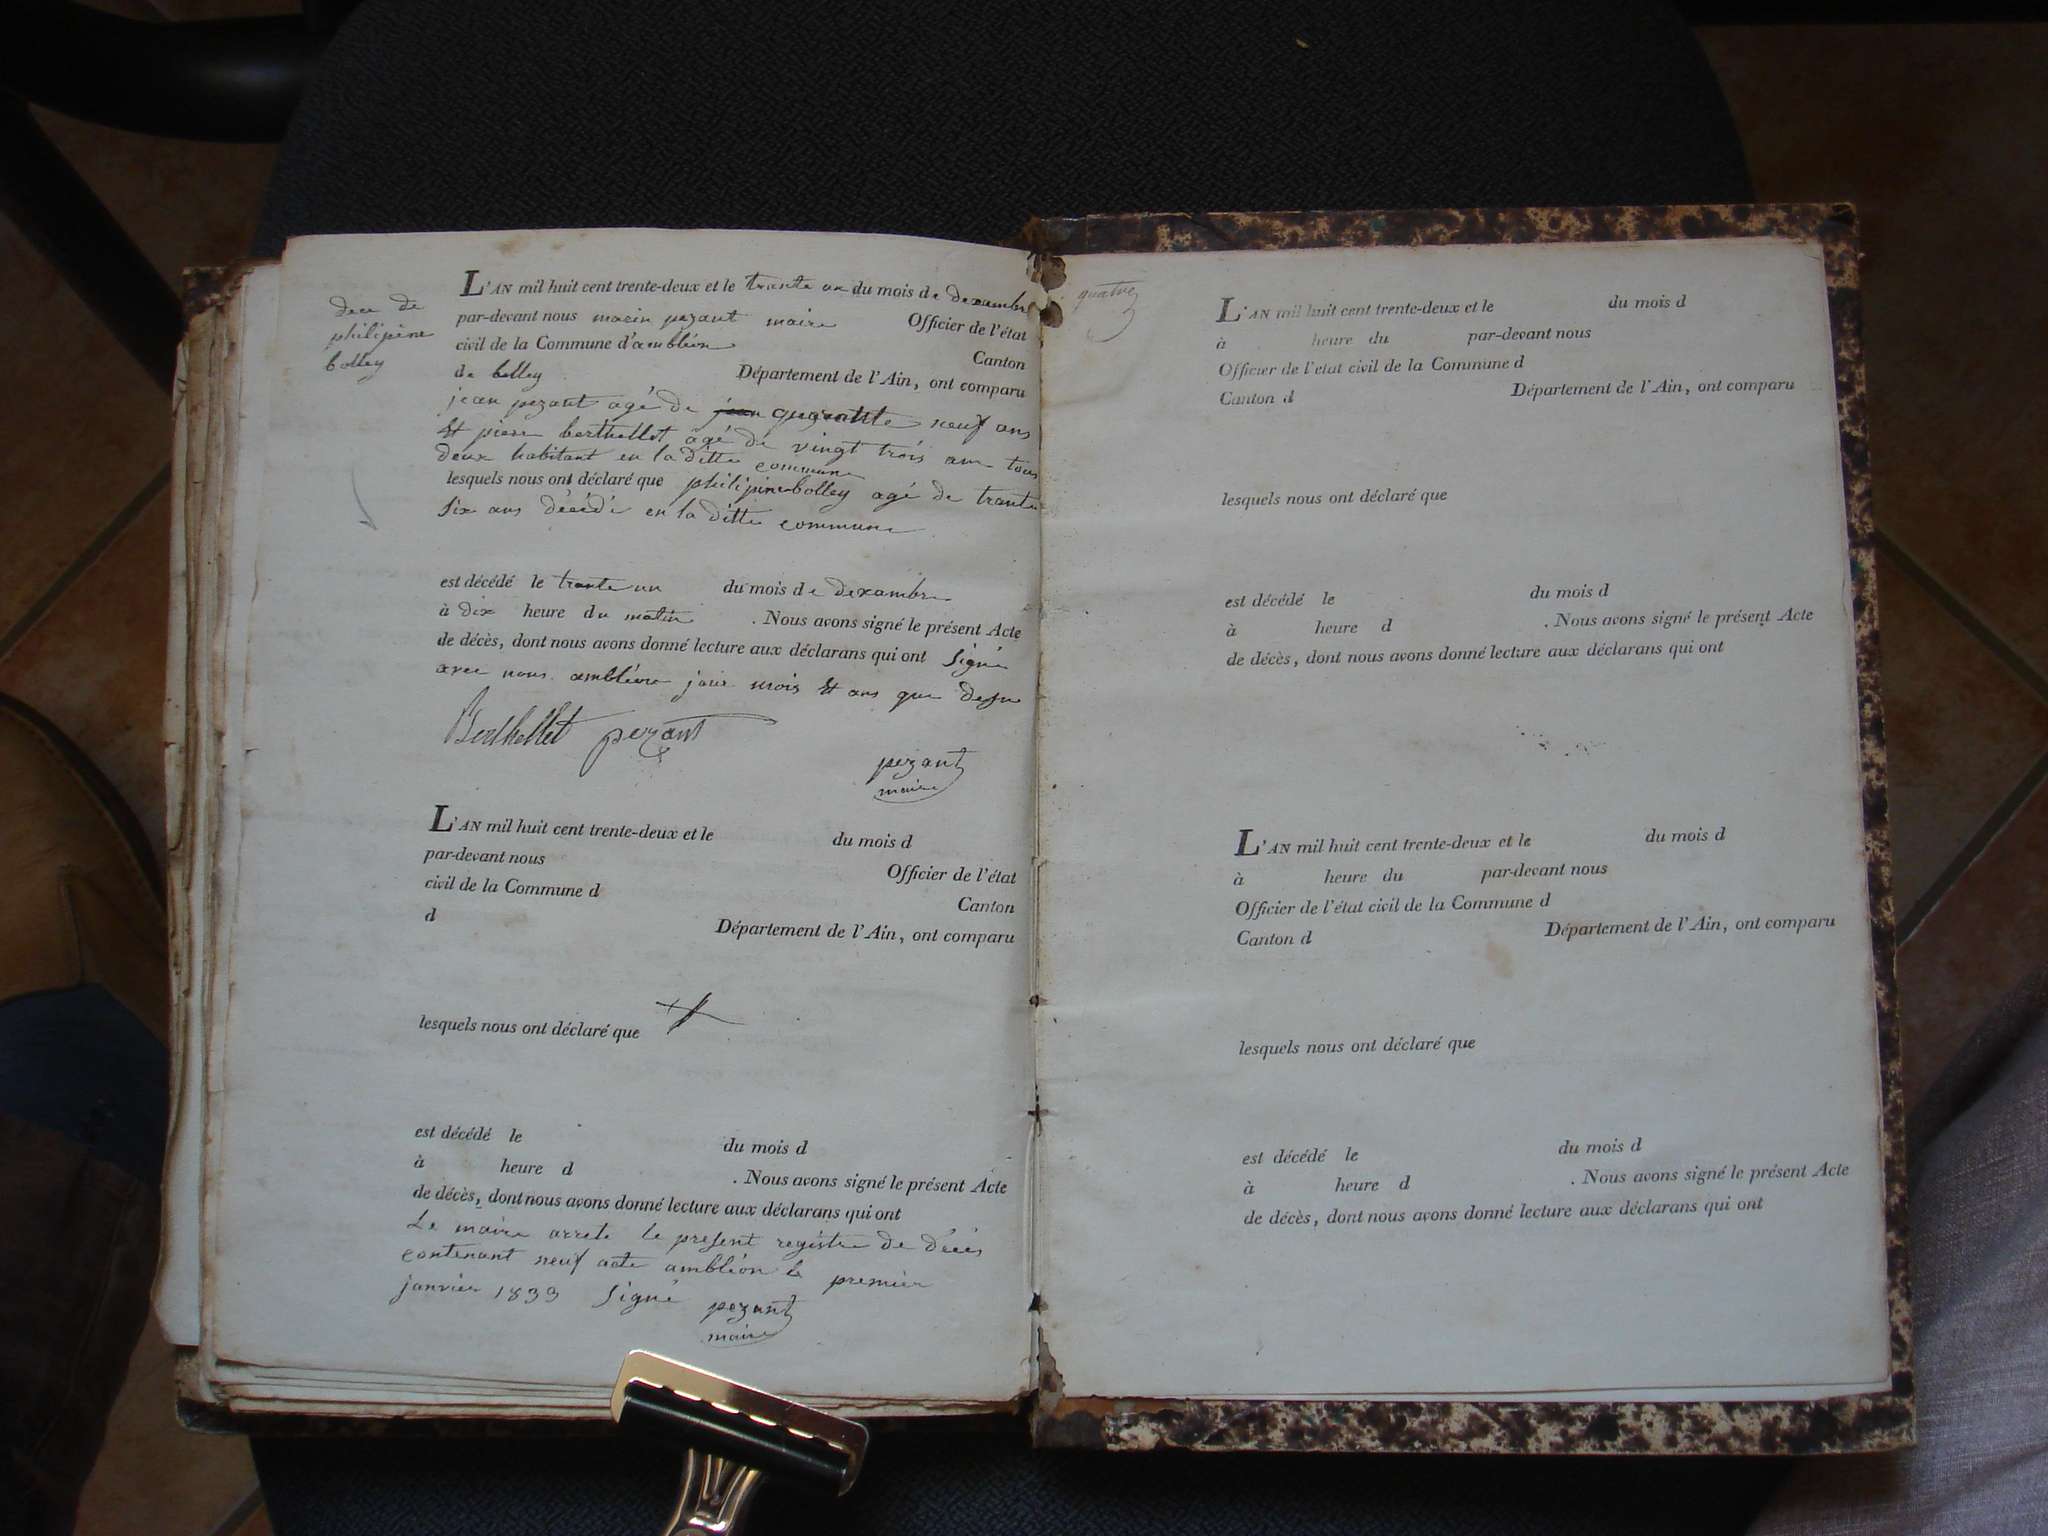 dece de
philipine
bolley
L'AN mil huit cent trente-deux et le trante un du mois de dexambre
par-devant nous marin pezant maire Officier de l'état
civil de la Commune d'ambleon Canton
de belley Département de l'Ain, ont comparu
jean pezant agé de quarante neuf ans
Et piere berthellet âgé de vingt trois ans tous
deux habitant en la ditte commune
lesquels nous ont déclaré que philipine bolley agé de trante
six ans décédé en la ditte commune
est décédé le trante un du mois de dexambre
à dix heure du matin . Nous avons signé le présent Acte
de décès, dont nous avons donné lecture aux déclarans qui ont signé
avec nous ambléon jour mois Et ans que desu
Berthellet pezant
pezant
maire
L'AN mil huit cent trente-deux et le du mois d
par-devant nous Officier de l'état
civil de la Commune d Canton
d Département de l'Ain, ont comparu
lesquels nous ont déclaré que
est décédé le du mois d
à heure d . Nous avons signé le présent Acte
de décès, dont nous avons donné lecture aux déclarans qui ont
Le maire arrete le present registre de décès
contenant neuf acte ambléon le premier
janvier 1833 signé pezant
maire
quatre
L'AN mil huit cent trente-deux et le du mois d
à heure du par-devant nous
Officier de l'état civil de la Commune d
Canton d Département de l'Ain, ont comparu
lesquels nous ont déclaré que
est décédé le du mois d
à heure d . Nous avons signé le présent Acte
de décès, dont nous avons donné lecture aux déclarans qui ont
L'AN mil huit cent trente-deux et le du mois d
à heure du par-devant nous
Officier de l'état civil de la Commune d
Canton d Département de l'Ain, ont comparu
lesquels nous ont déclaré que
est décédé le du mois d
à heure d . Nous avons signé le présent Acte
de décès, dont nous avons donné lecture aux déclarans qui ont